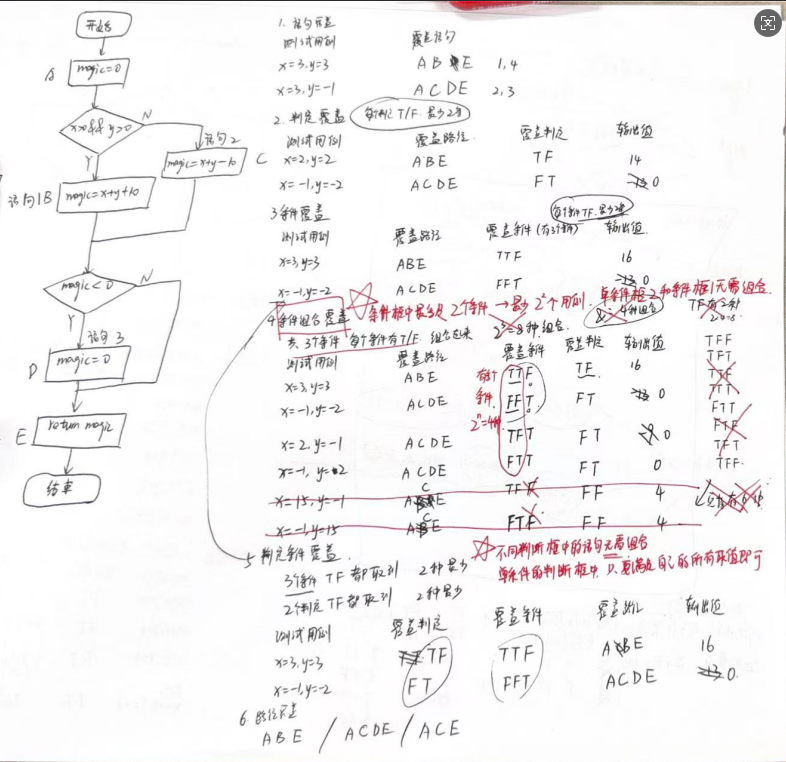 开始
A magic=0
x>0 && y>0
N
Y
语句2
magic=x+y-10 C
语句1B magic=x+y+10
magic<0
N
Y
语句3
D magic=0
E return magic
结束
1. 语句覆盖
测试用例 覆盖语句
x=3,y=3 AB E 1,4
x=3,y=-1 ACDE 2,3
2. 判定覆盖 每个判定T/F.最少2条
测试用例 覆盖路径 覆盖判定 输出值
x=2,y=2 ABE TF 14
x=-1,y=-2 ACDE FT 0
每个条件TF.最少
3 条件覆盖
测试用例 覆盖路径 覆盖条件(有3个条件) 输出值
x=3,y=3 ABE TTF 16
x=-1,y=-2 ACDE FFT 0
4 条件组合覆盖 条件框中最多处2个条件 → 最少2²个用例. 单条件框2和条件框1无需组合.
共3个条件 每个条件有T/F. 组合起来 2³=8种.组合. 4种组合 TF
测试用例 覆盖路径 覆盖条件 覆盖判定 输出值
x=3,y=3 ABE TTF TF 16
x=-1,y=-2 ACDE FFT FT 0
x=2,y=-1 ACDE TFT FT 0
x=-1,y=2 ACDE FTT FT 0
x=15,y=-1 ACE TF FF 4
x=-1,y=15 ACE FT FF 4
有2个
条件.
2ⁿ=4种
TFF
TFT
TTF
TTT
FTT
FTF
TFT
TFF
不同判断框中的语句无需组合
单条件的判断框中 D.要满足自己的所有取值即可
5 判定条件覆盖.
3个条件 TF 都取到 2种最少
2个判定 TF 都取到 2种最少
测试用例 覆盖判定 覆盖条件 覆盖路径 输出值
x=3,y=3 TF TTF ABE 16
x=-1,y=-2 FT FFT ACDE 0.
6. 路径覆盖
ABE / ACDE / ACE